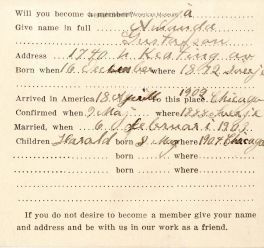 Will you become a member? ja
Give name in full Amanda
Gustafson
Address 1770 N Keating av
Born when 16 December where 1892 Sverje
1909
Arrived in America 18 April to this place Chicago
Confirmed when 9 Maj where Sverje
Married, when 6 Februari 1909
Children Harald born 8 Maj where 1909 Chicago
born where
born where
If you do not desire to become a member give your name
and address and be with us in our work as a friend.